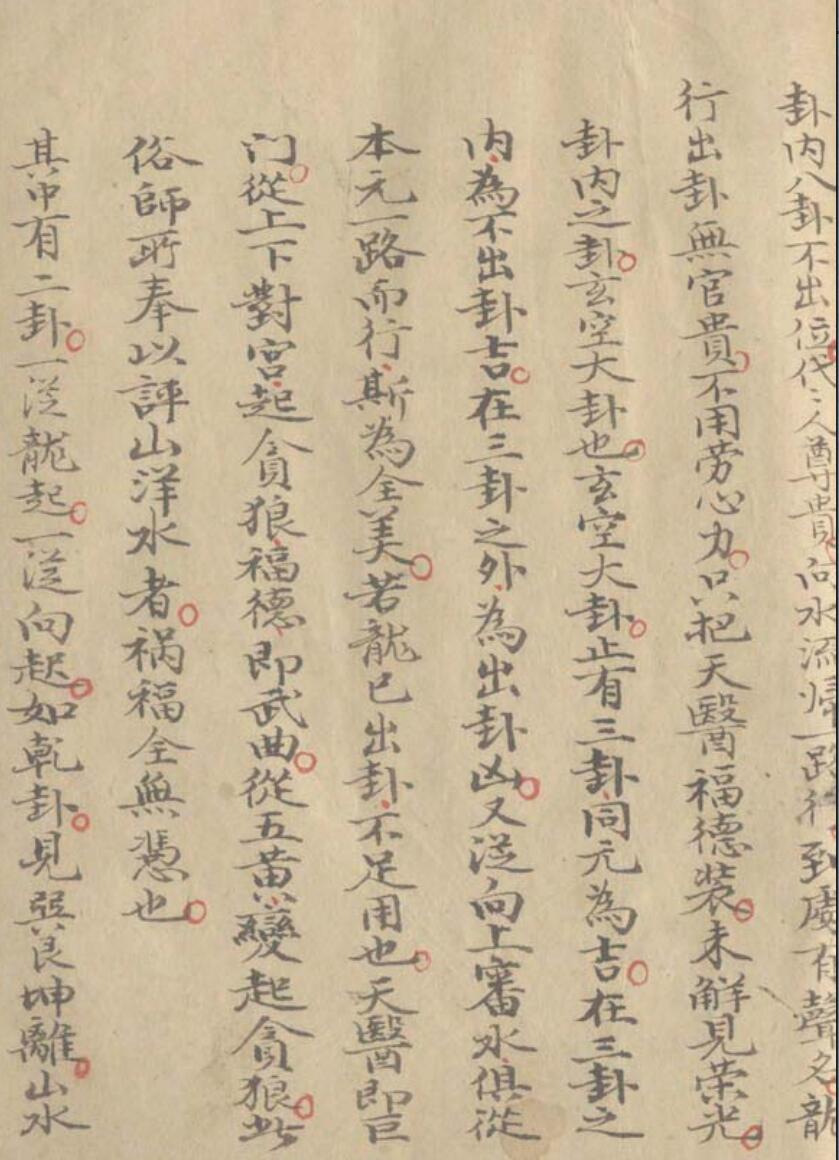 卦内八卦不出位代〻人尊貴向水流归一路行到處有聲名龍
行出卦無官貴不用劳心力只把天醫福德装未解見荣光
卦内之卦玄空大卦也玄空大卦止有三卦同元為吉在三卦之
内為不出卦吉在三卦之外為出卦凶又従向上審水俱従
本元一路而行斯為全美若龍已出卦不足用也天醫即巨
门從上下對宮起貪狼福德即武曲從五黄變起貪狼此
俗師所奉以評山洋水者祸福全無憑也
其中有二卦一従龍起一従向起如乾卦見巽艮坤離山水